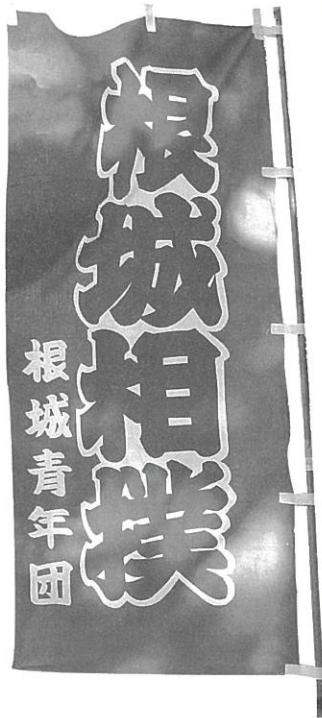 根城相撲
根城青年団